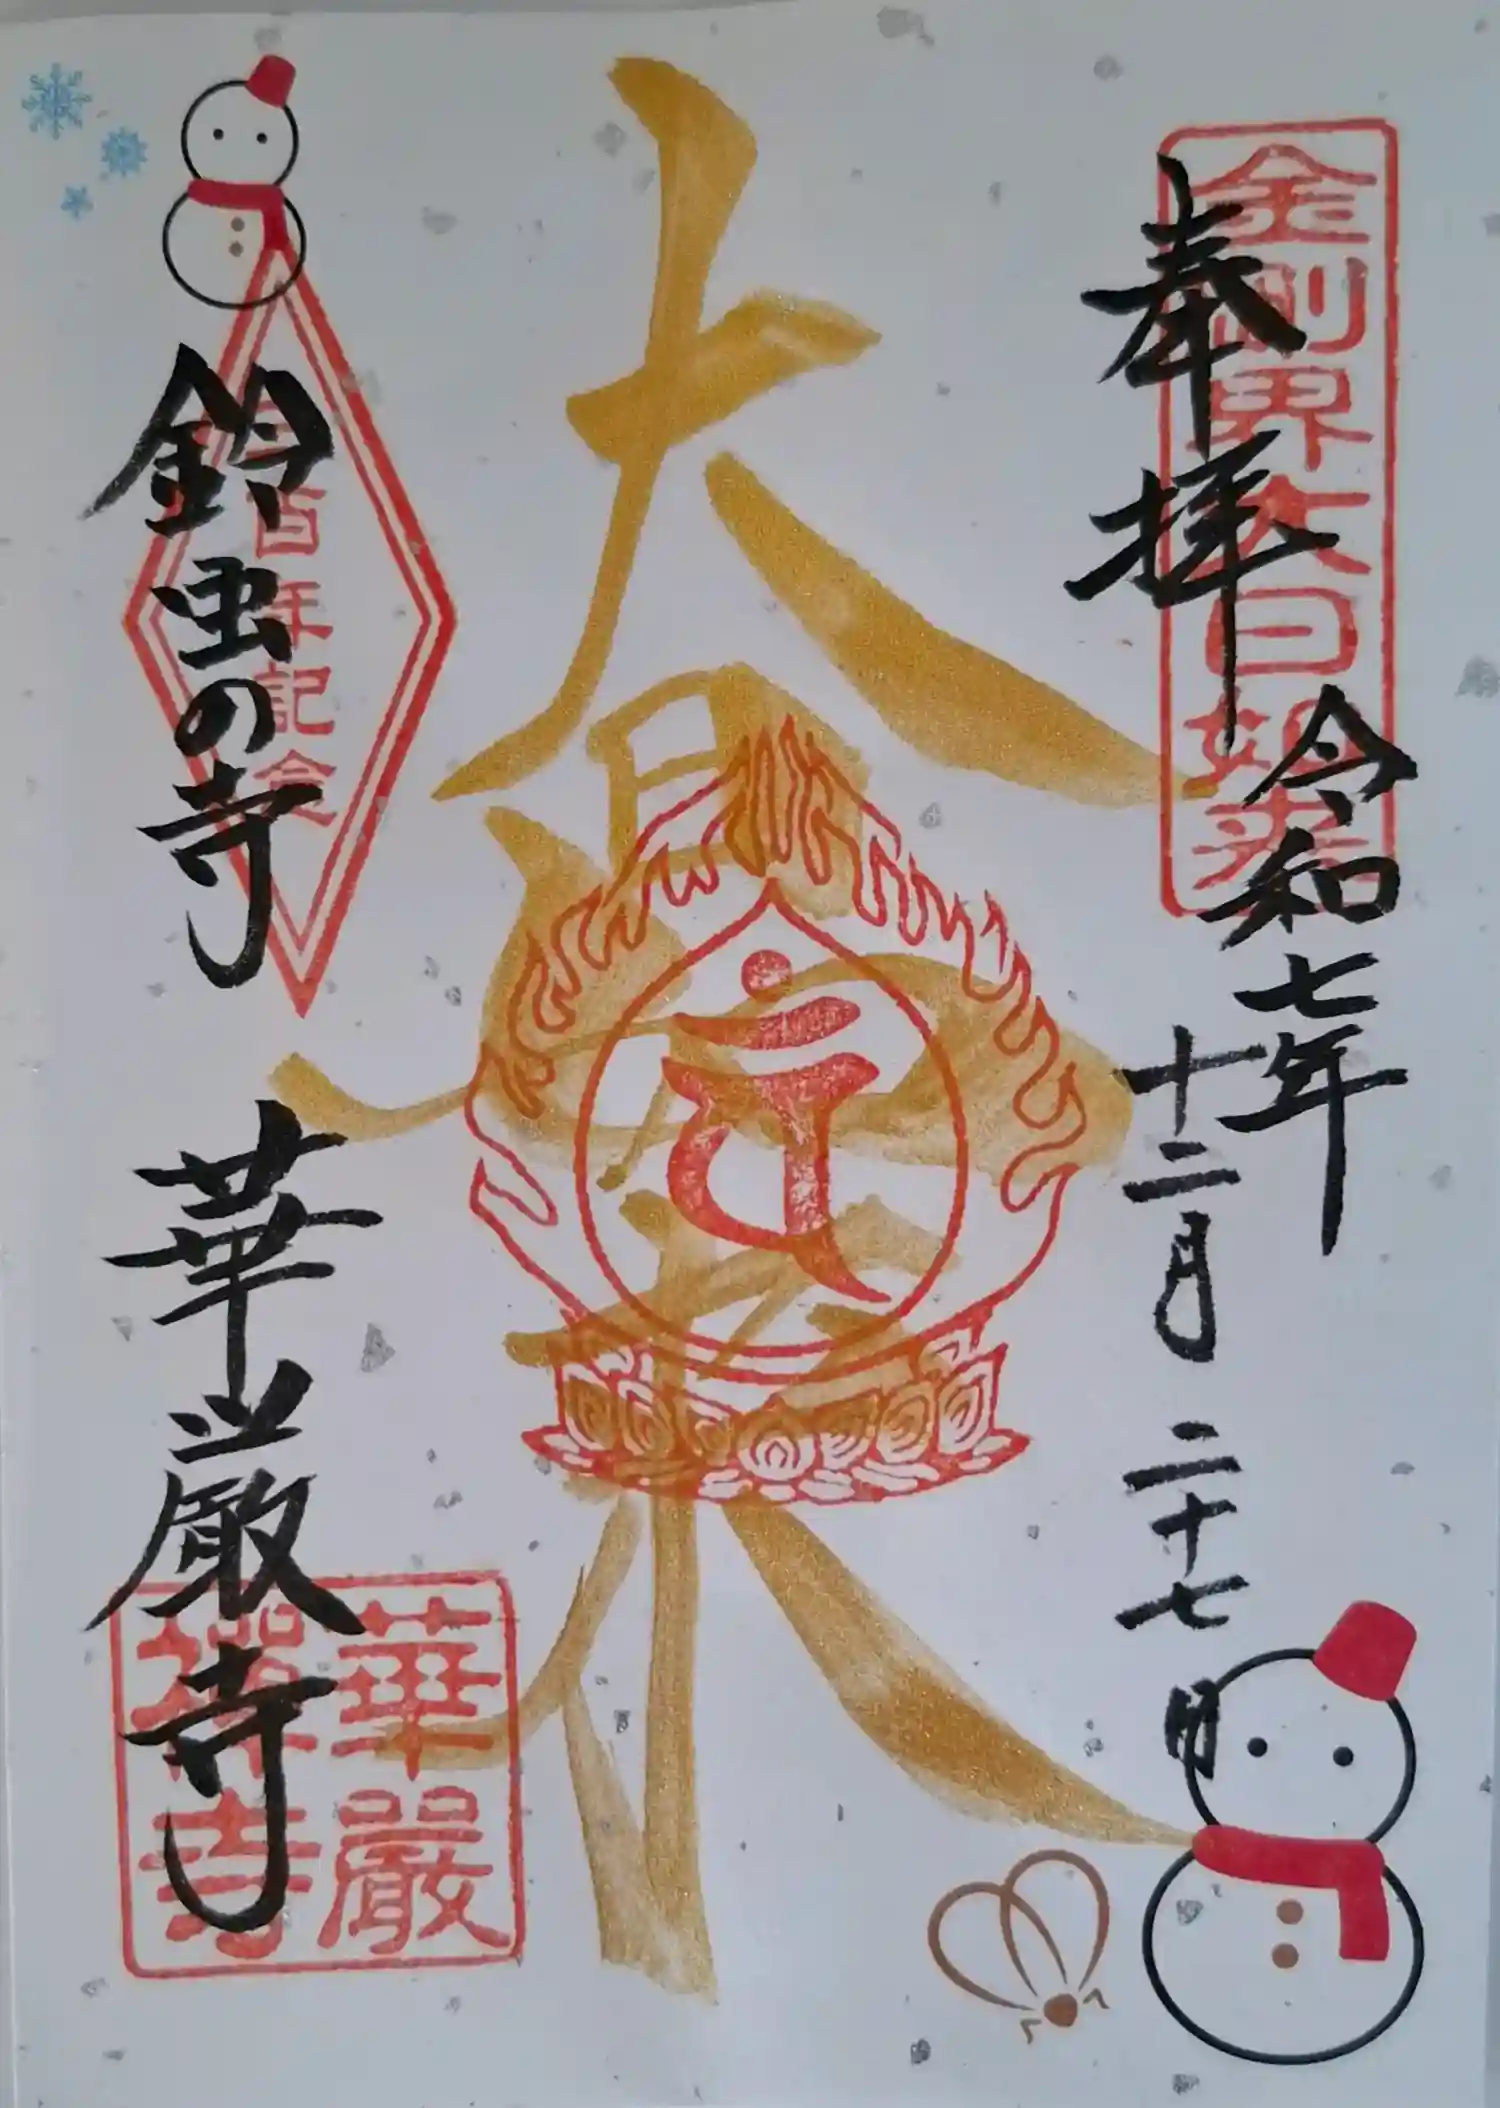 奉拝
金剛界大日如来
令和七年
十二月二十七日
大日如来
鈴虫の寺
百年記念
華厳寺
華嚴
禅寺